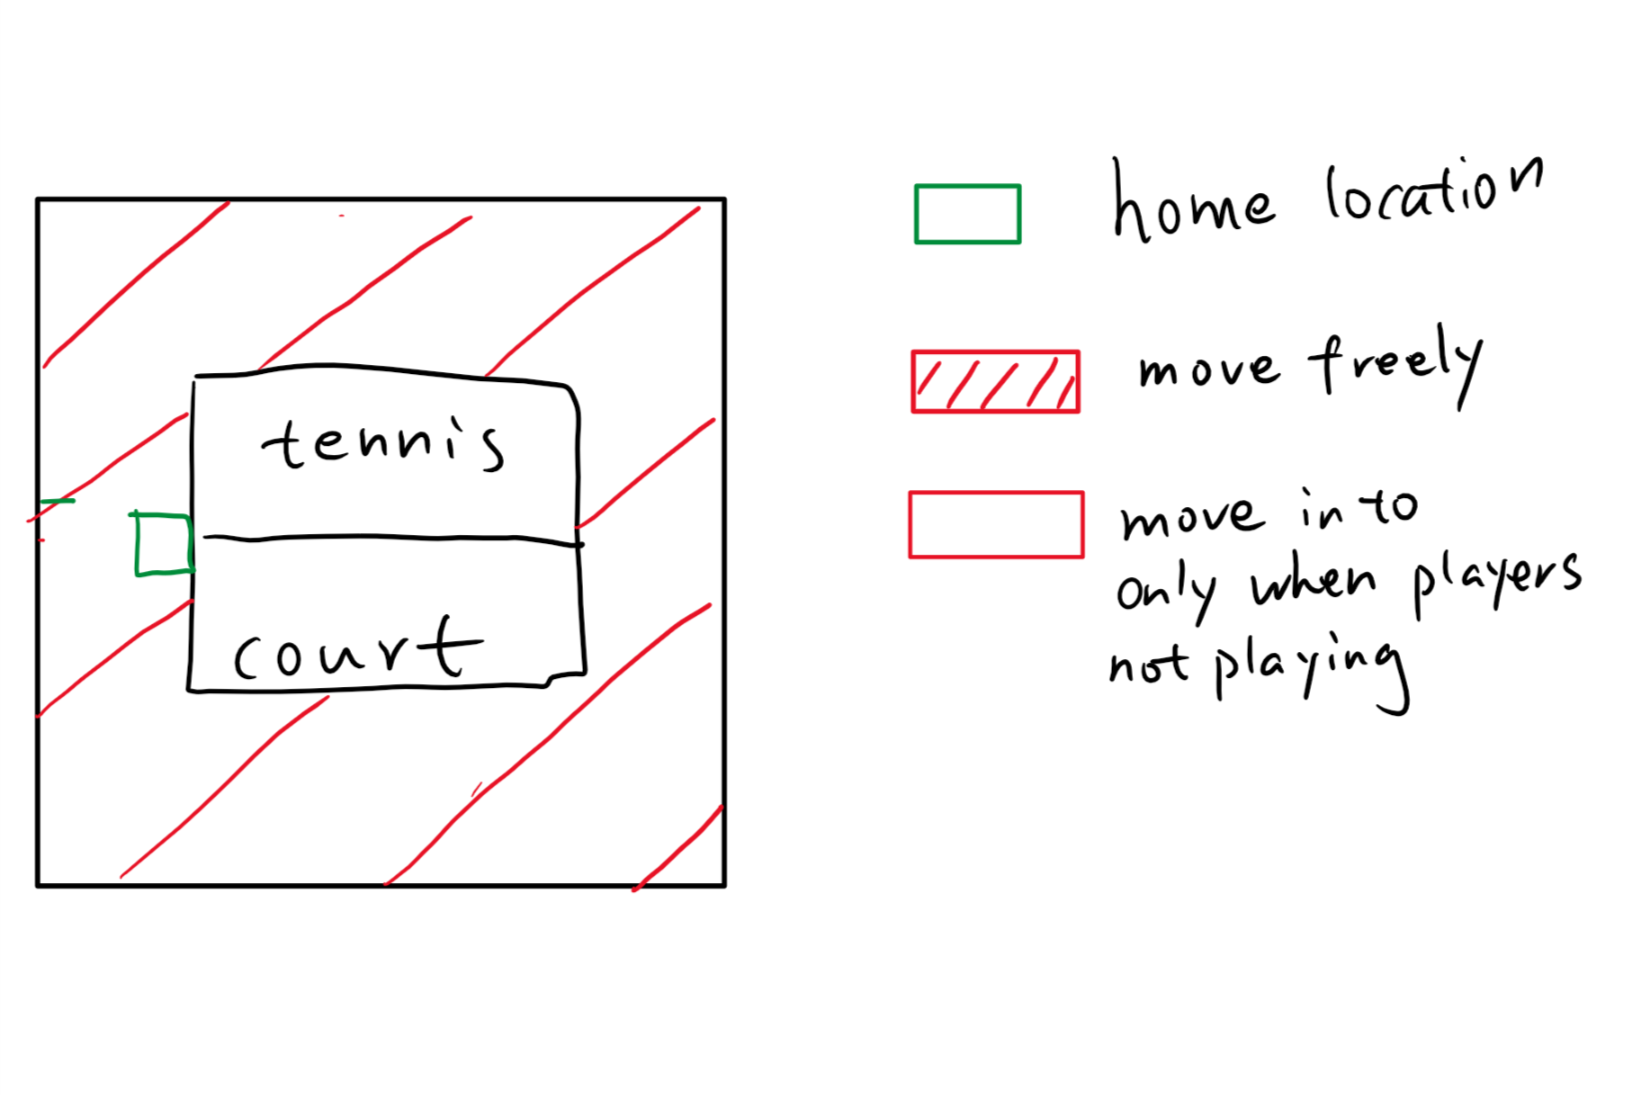 tennis
court
home location
move freely
move into
only when players
not playing